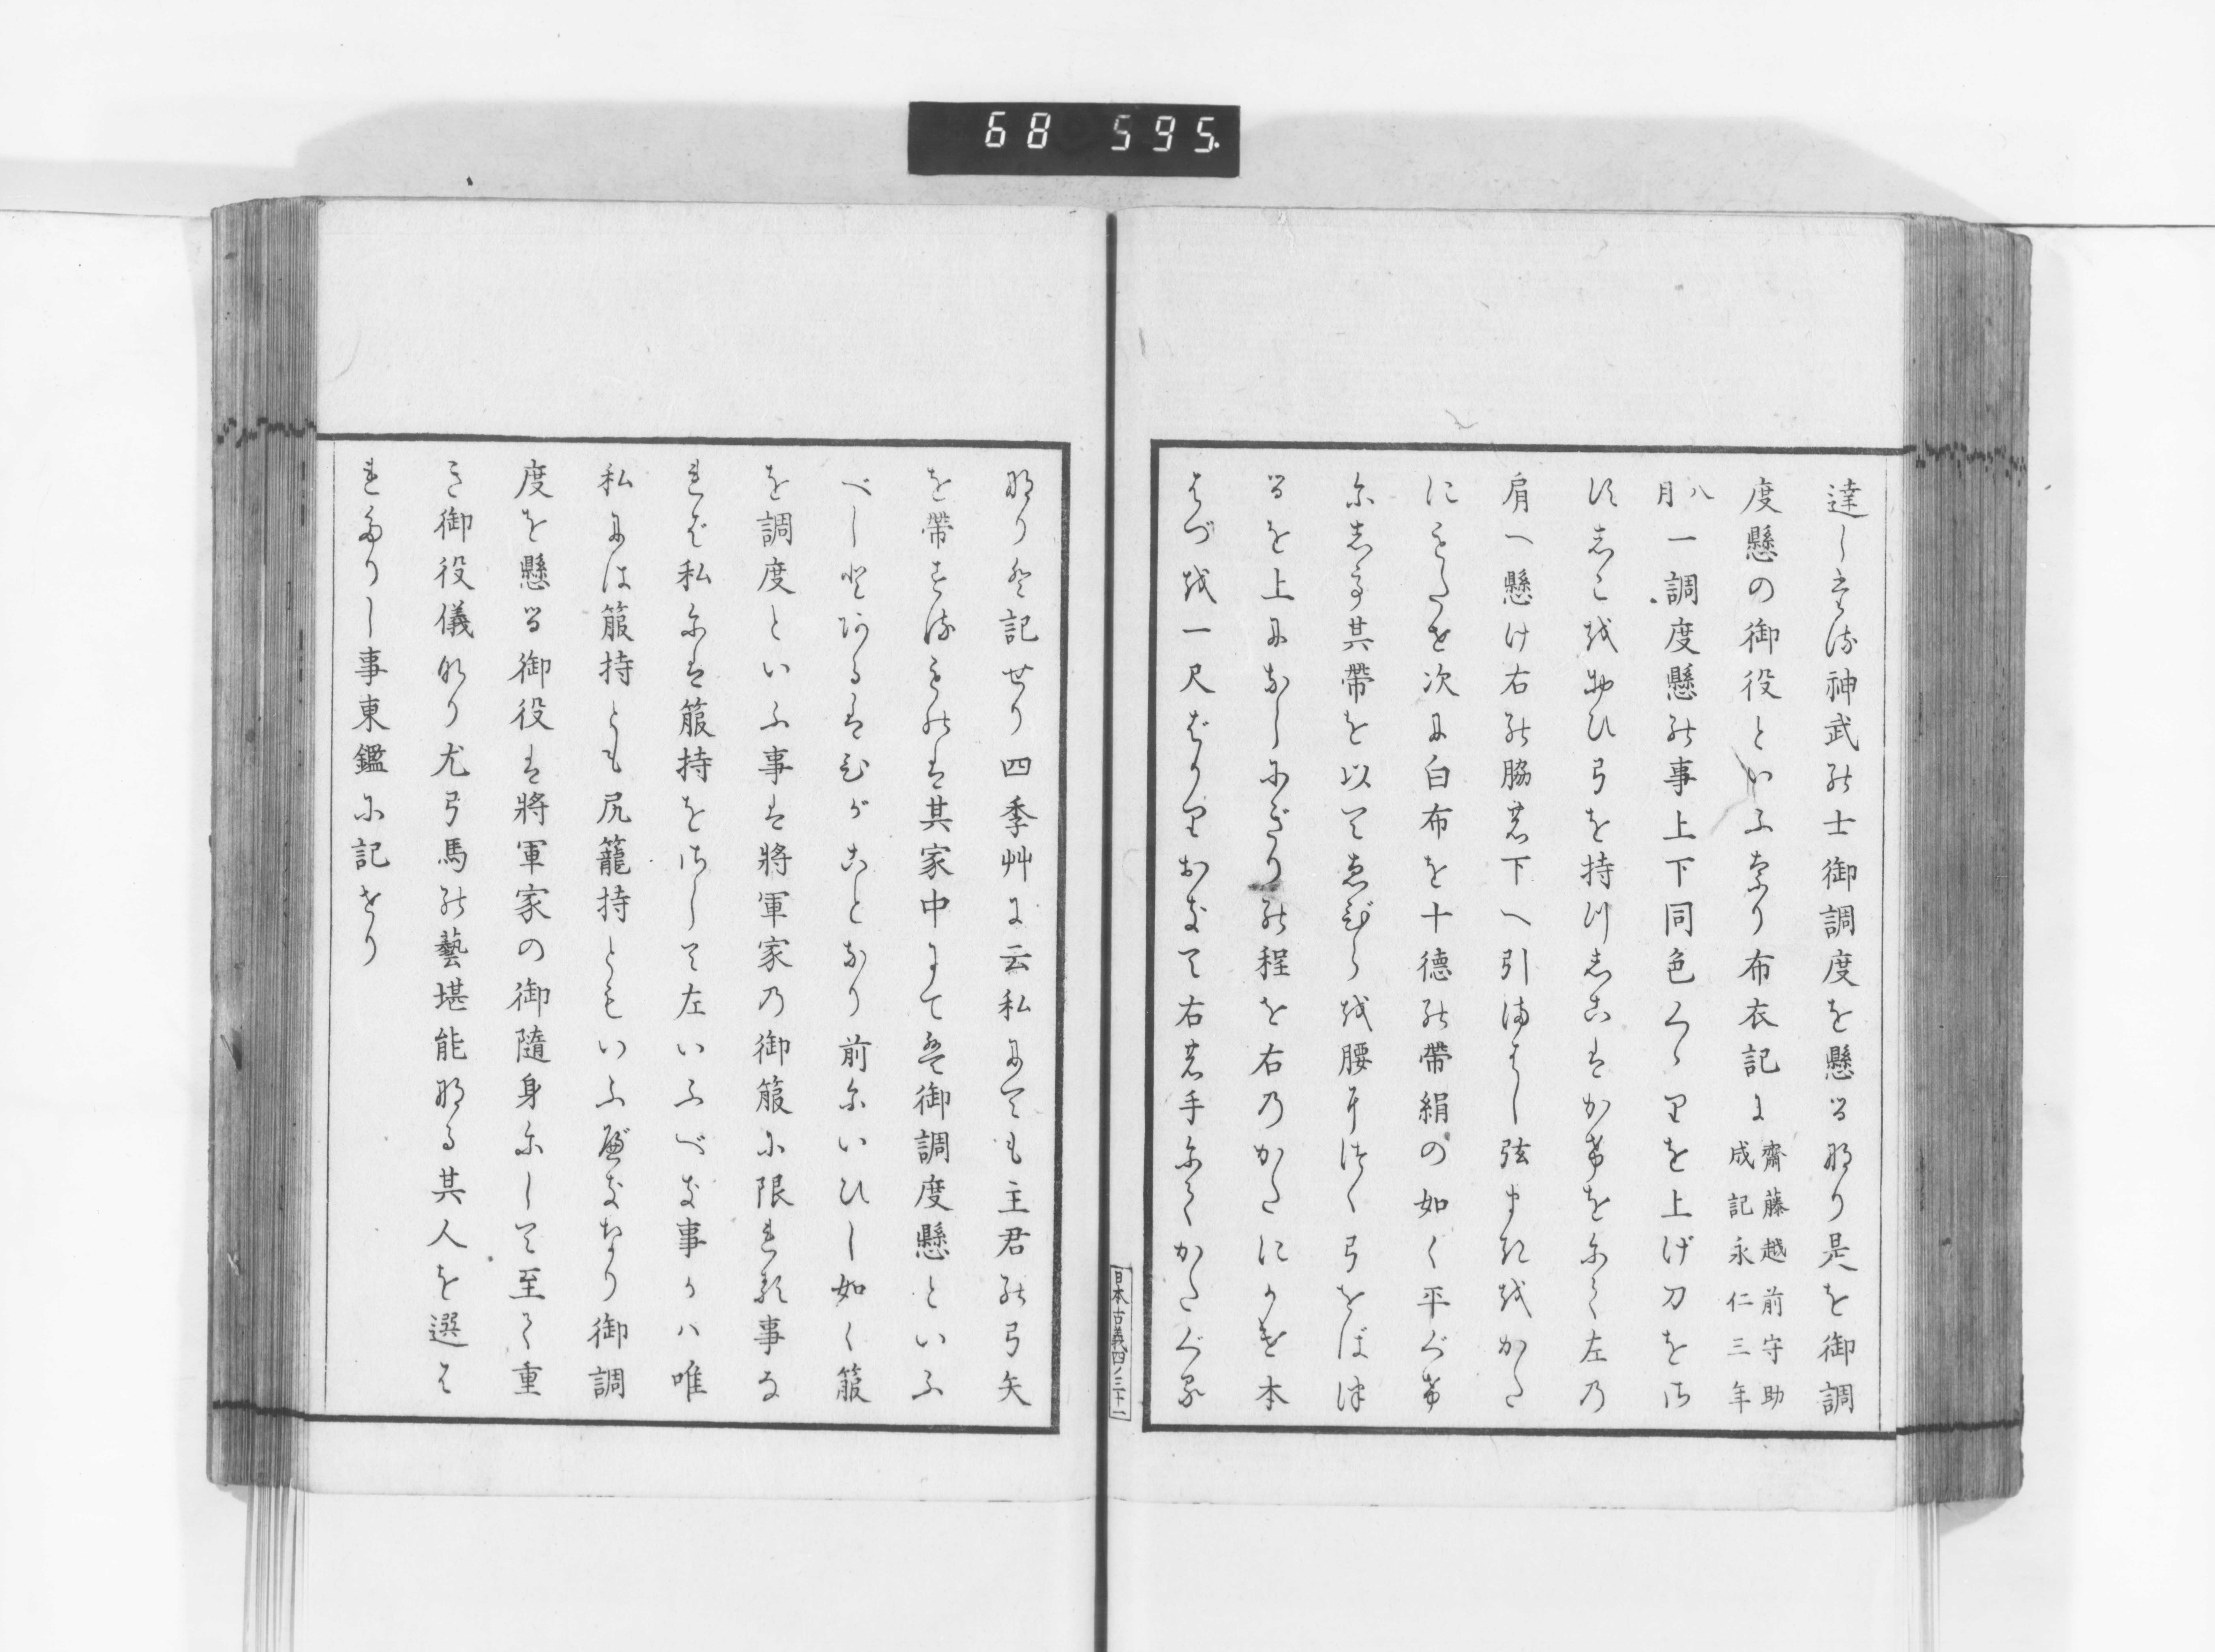 68 595
達したる神武の士御調度を懸るなり是を御調
度懸の御役といふなり布衣記に齋藤越前守助成記永仁三年
八月一調度懸の事上下同色くゝりを上げ刀をさ
すしこをおひ弓を持つしこはかけをにて左の
肩へ懸け右の脇の下へ引まはし弦まきをかた
にもたせ次に白布を十徳の帶絹の如く平ぐけ
にして其帶を以てゑびらを腰につけ弓をばつ
るを上になしにぎりの程を右のかたにかけ本
はづを一尺ばかりおきて右の手にてかたぐる
日本古義四ノ三十一
なりと記せり四季艸に云私にても主君の弓矢
を帶するものは其家中にては御調度懸といふ
べしとあるはひがことなり前にいひし如く箙
を調度といふ事は將軍家の御箙に限れる事な
れば私には箙持をさして左いふべき事かハ唯
私には箙持とも尻籠持ともいふべきなり御調
度を懸る御役は將軍家の御隨身にして至て重
き御役儀なり尤弓馬の藝堪能なる其人を選は
れたりし事東鑑に記せり